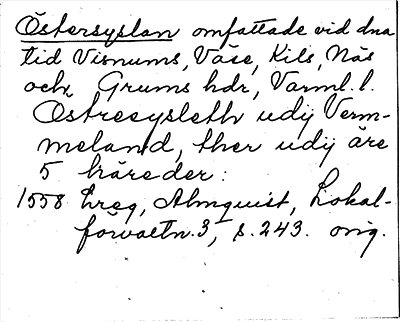 Östersyslan omfattade vid dna
tid Visnums, Väse, Kils, Näs
och Grums hdr, Värml. l.
Östresysleth udij Verm-
meland, ther udij äre
5 häreder:
1558 Lreg, Almquist, Lokal-
förvaltn. 3, s. 243. orig.